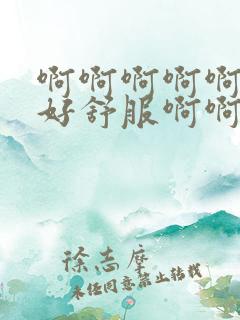 啊啊啊啊啊
好舒服啊啊
徐志摩
未经同意禁止转载